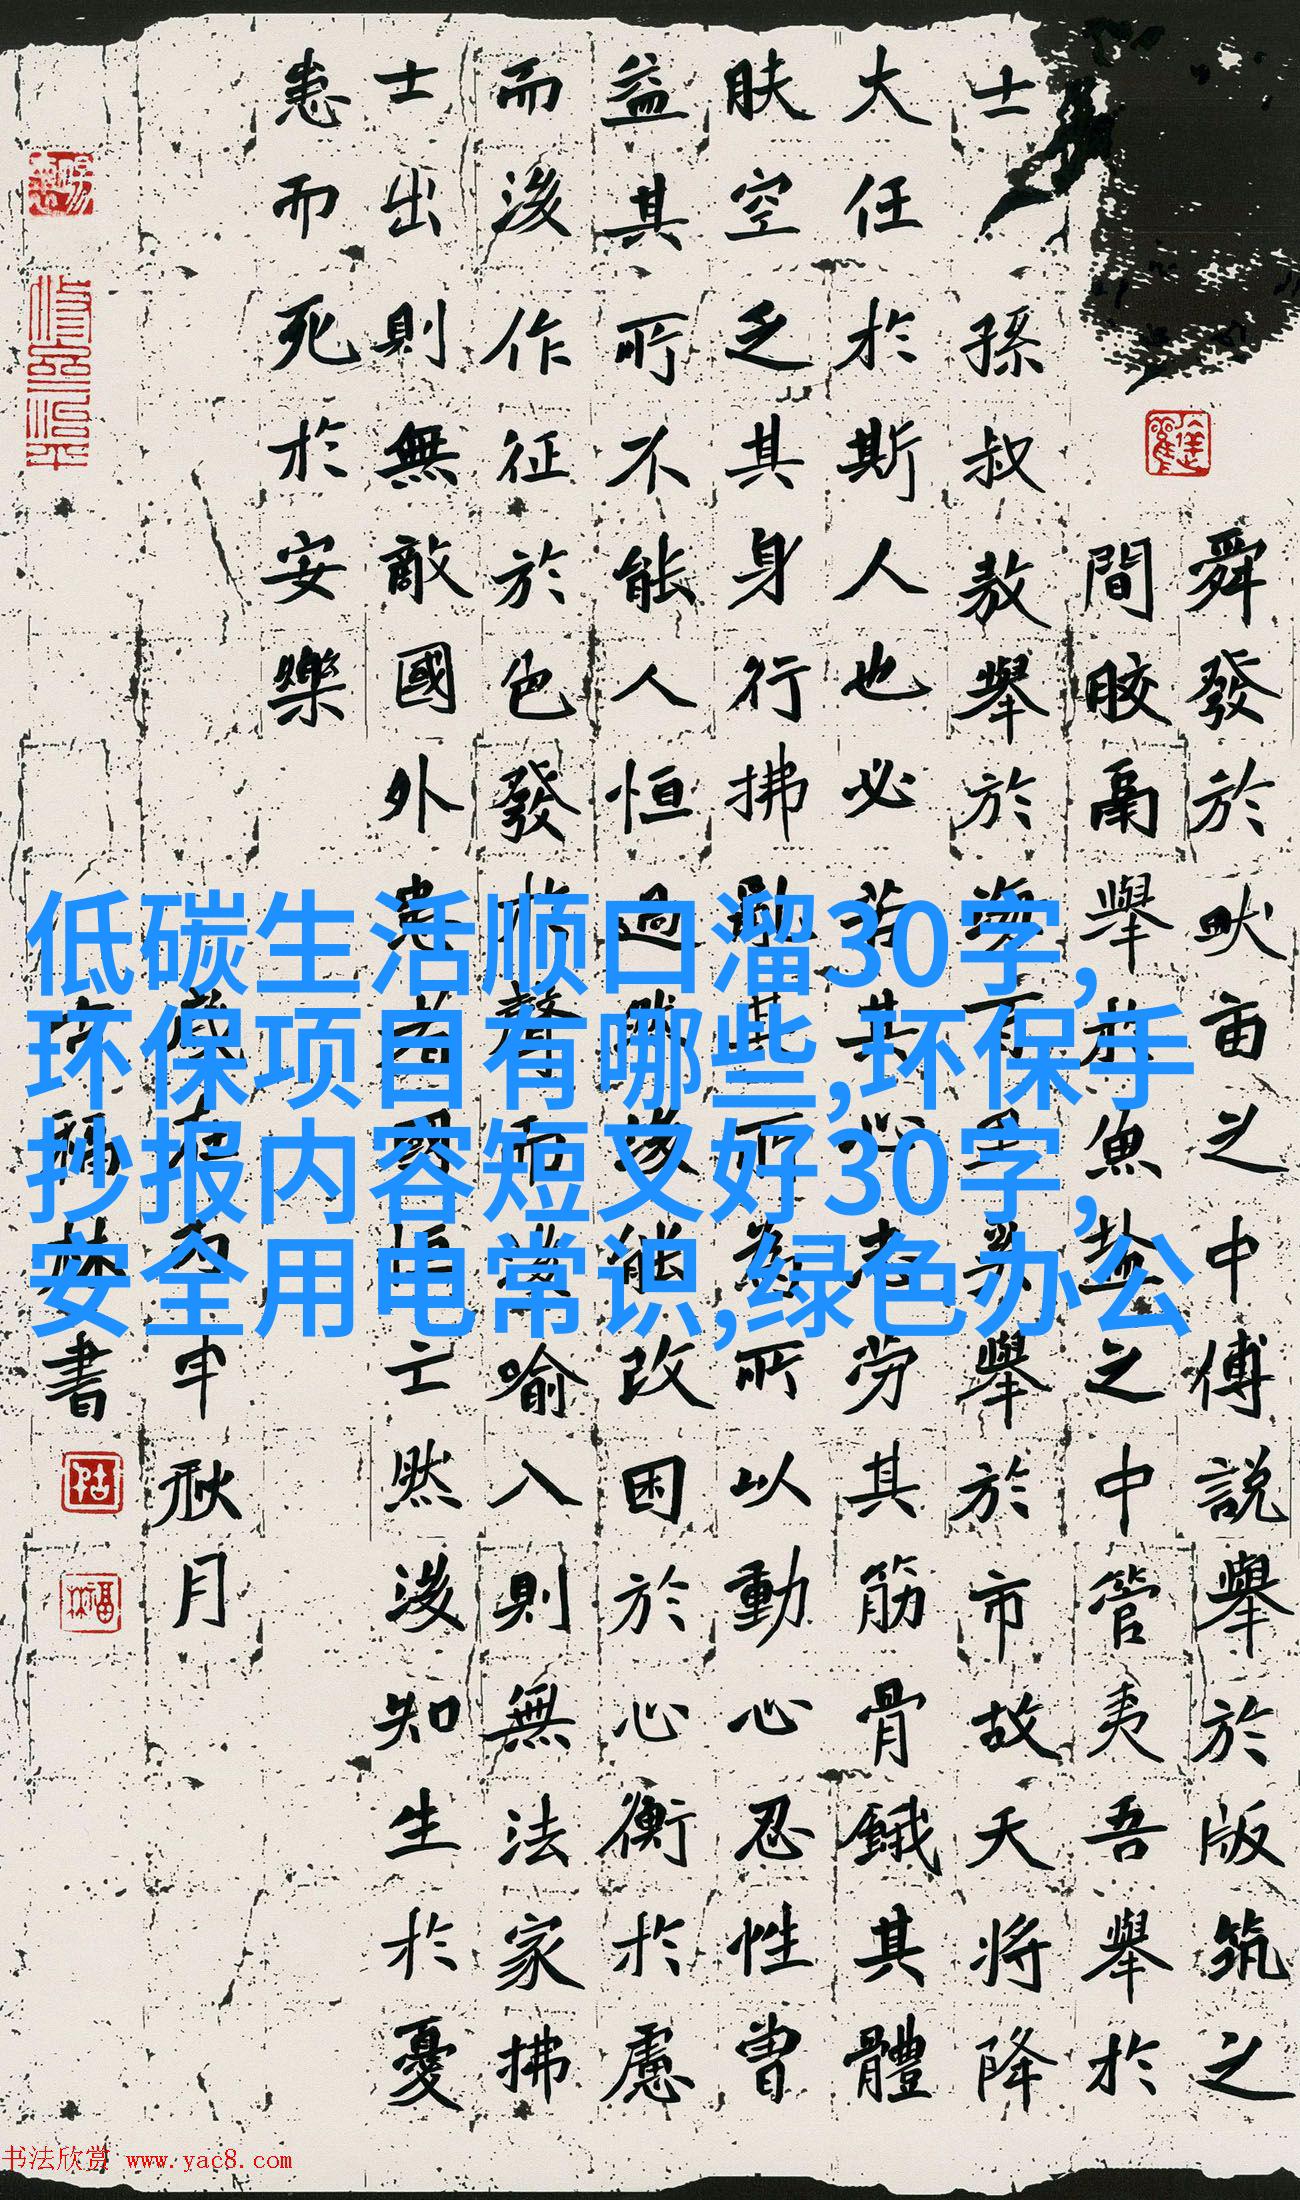 舜發於畎亩之中傅説舉於版筑之
間膠鬲舉於魚盐之中管夷吾舉於
士孫叔敖舉於海百里奚舉於市故天將降
大任於斯人也必苦其心志劳其筋骨餓其體
肤空乏其身行拂亂其所為所以動心忍性曾
益其所不能人恒過然後能改困於心衡於慮
而後作征於色發於聲而後喻入則無法家拂
士出則無敵國外患者國恒亡然後知生於憂
患而死於安樂
歲在丙申秋月
福林書
低碳生活顺口溜30字,
环保项目有哪些,环保手
抄报内容短又好30字,
安全用电常识,绿色办公
书法欣赏 www.yac8.com